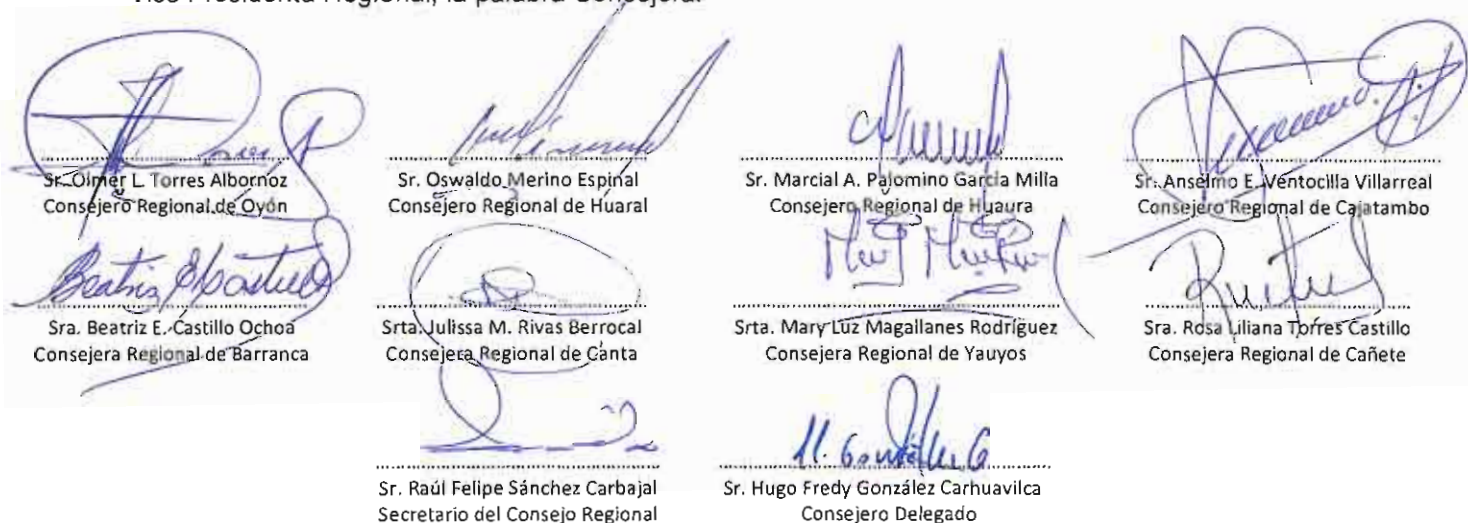 Vice Presidenta Regional, la palabra Consejera.
Sr. Olmer L. Torres Albornoz
Consejero Regional de Oyón
Sr. Oswaldo Merino Espinal
Consejero Regional de Huaral
Sr. Marcial A. Palomino García Milla
Consejero Regional de Huaura
Sr. Anselmo E. Ventocilla Villarreal
Consejero Regional de Cajatambo
Beatriz E Castillo
Sra. Beatriz E. Castillo Ochoa
Consejera Regional de Barranca
Srta. Julissa M. Rivas Berrocal
Consejera Regional de Canta
Srta. Mary Luz Magallanes Rodríguez
Consejera Regional de Yauyos
Sra. Rosa Liliana Torres Castillo
Consejera Regional de Cañete
Sr. Raúl Felipe Sánchez Carbajal
Secretario del Consejo Regional
Sr. Hugo Fredy González Carhuavilca
Consejero Delegado